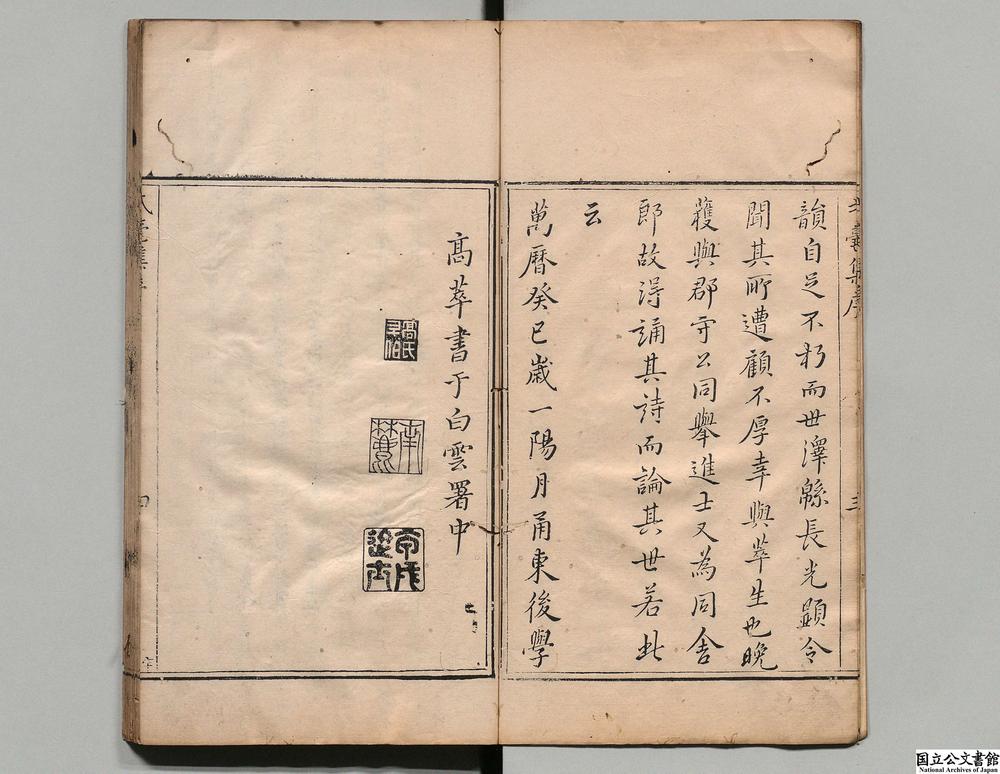 韻自足不朽而世澤緜長光顯令
聞其所遭顧不厚幸與萃生也晚
獲與郡守公同舉進士又為同舍
郎故得誦其詩而論其世若此
云
萬曆癸巳歲一陽月甬東後學
高萃書于白雲署中
国立公文書館
National Archives of Japan